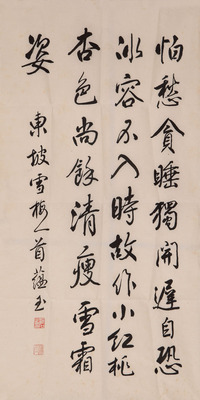 怕愁貪睡獨開遲自恐
冰容不入時故作小紅桃
杏色尚餘清瘦雪霜
姿
東坡雪梅一首蘊玉